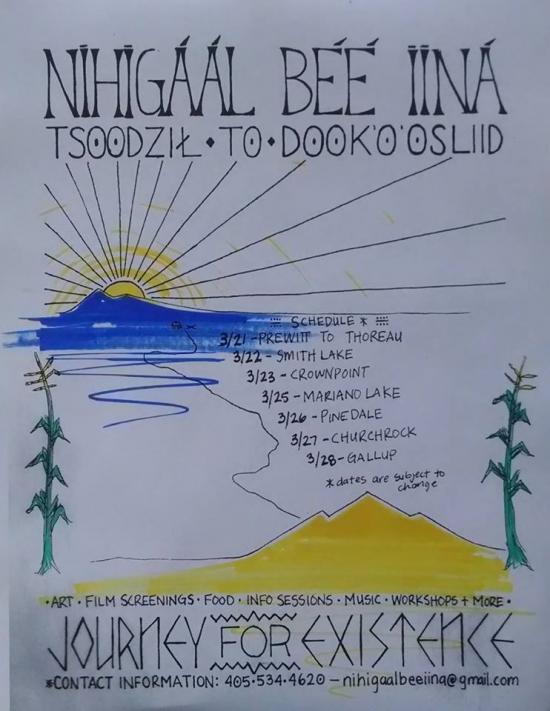 NIHIGÁÁL BÉÉ IINÁ
TSOODZIŁ • TO • DOOK'O'OSLIID
SCHEDULE *
3/21 - PREWITT TO THOREAU
3/22 - SMITH LAKE
3/23 - CROWNPOINT
3/25 - MARIANO LAKE
3/26 - PINEDALE
3/27 - CHURCHROCK
3/28 - GALLUP
* dates are subject to
change
• ART • FILM SCREENINGS • FOOD • INFO SESSIONS • MUSIC • WORKSHOPS + MORE •
JOURNEY FOR EXISTENCE
*CONTACT INFORMATION: 405•534•4620 — nihigaalbeeiina@gmail.com